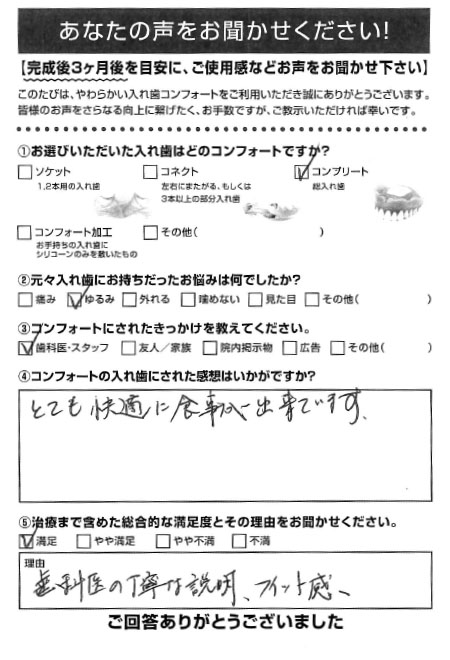 あなたの声をお聞かせください!
【完成後3ヶ月後を目安に、ご使用感などお声をお聞かせ下さい】
このたびは、やわらかい入れ歯コンフォートをご利用いただき誠にありがとうございます。
皆様のお声をさらなる向上に繋げたく、お手数ですが、ご教示いただければ幸いです。
①お選びいただいた入れ歯はどのコンフォートですか?
□ソケット □コネクト ☑コンプリート
1,2本用の入れ歯 左右にまたがる、もしくは 総入れ歯
3本以上の部分入れ歯
□コンフォート加工 □その他( )
お手持ちの入れ歯に
シリコーンのみを敷いたもの
②元々入れ歯にお持ちだったお悩みは何でしたか?
□痛み ☑ゆるみ □外れる □噛めない □見た目 □その他( )
③コンフォートにされたきっかけを教えてください。
☑歯科医・スタッフ □友人/家族 □院内掲示物 □広告 □その他( )
④コンフォートの入れ歯にされた感想はいかがですか?
とても快適に食事が出来ています、
⑤治療まで含めた総合的な満足度とその理由をお聞かせください。
☑満足 □やや満足 □やや不満 □不満
理由
歯科医の丁寧な説明、フィット感、
ご回答ありがとうございました